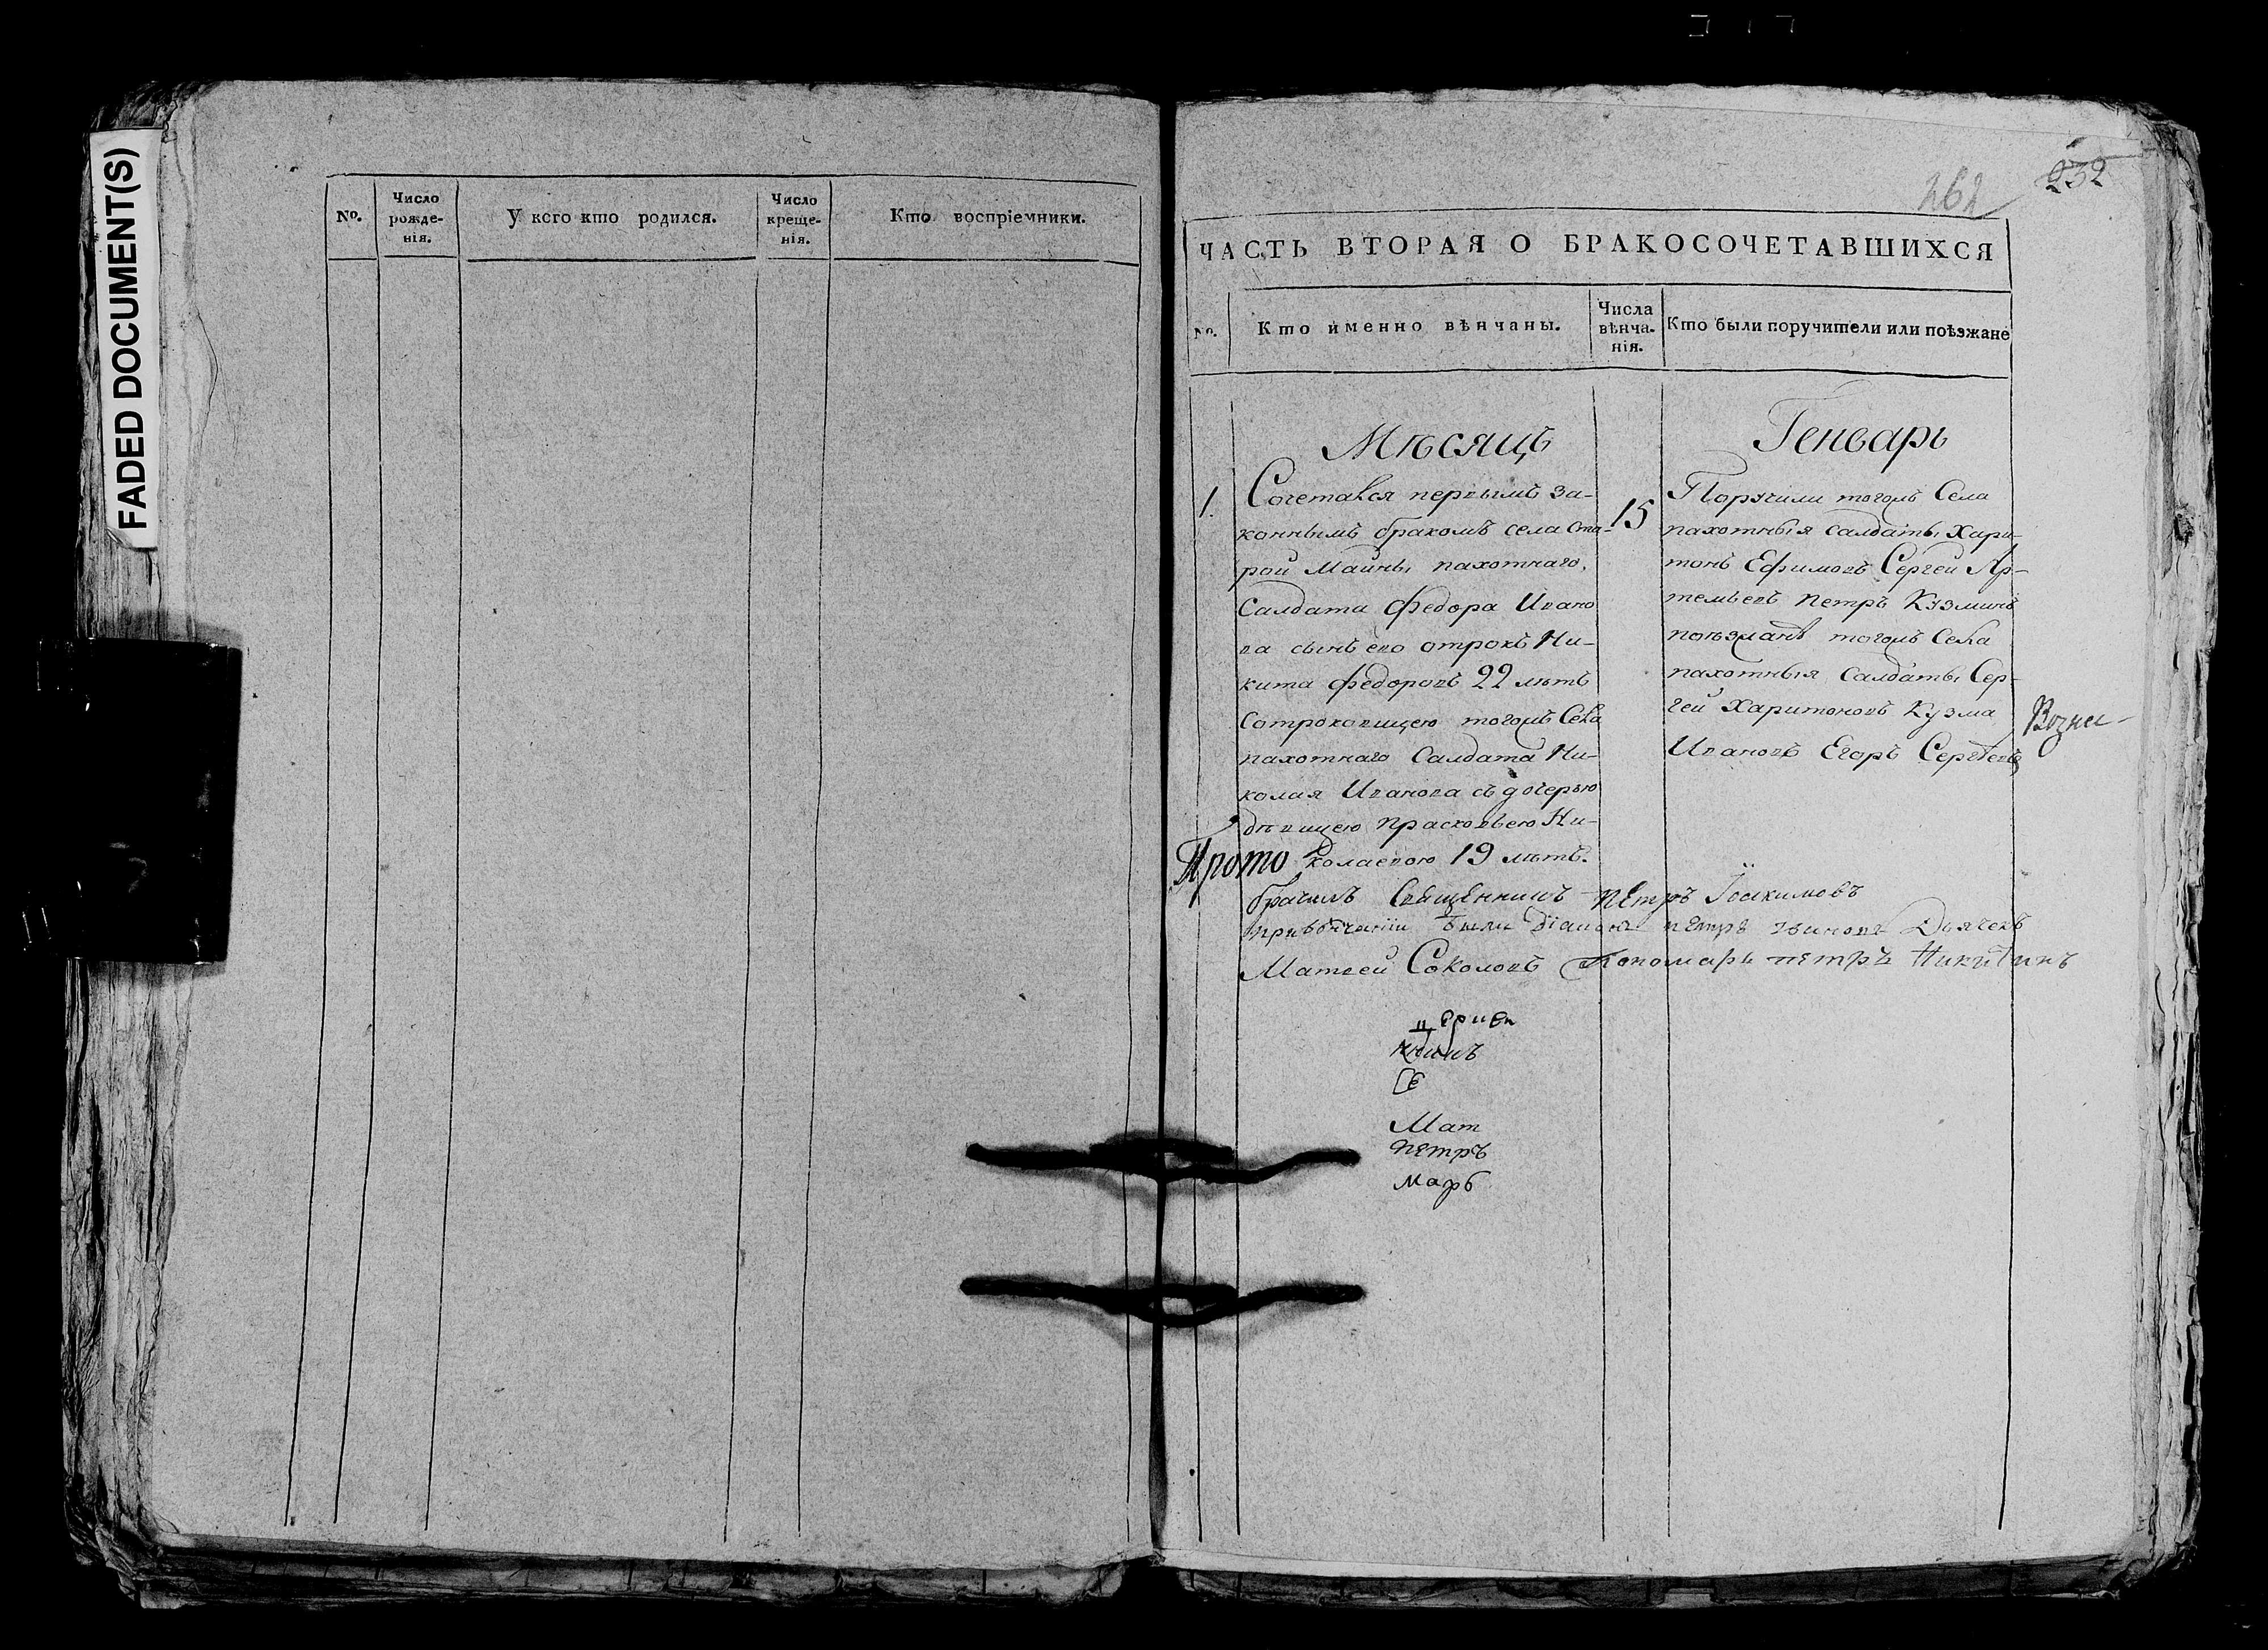 FADED DOCUMENT(S)
No. Число рожде- нія. У кого кто родился. Число креще- нія. Кто воспріемники.
262 232
ЧАСТЬ ВТОРАЯ О БРАКОСОЧЕТАВШИХСЯ
No. Кто именно вѣнчаны. Числа вѣнча- нія. Кто были поручители или поѣзжане
Мѣсяцъ
1. Сочетался первымъ за-
коннымъ бракомъ села Ста-
рой Майны пахотнаго
Салдата Федора Ивано
ва сынъ ево отрокъ Ни-
кита Федоровъ 22 лѣтъ
Сотроковицею тогожъ Села
пахотнаго Салдата Ни-
колая Иванова съ дочерью
дѣвицею Прасковьею Ни-
колаевою 19 лѣтъ.
15
Генварь
Поручили тогожъ Села
пахотныя салдаты Хари-
тонъ Ефимовъ Сергей Ар-
темьевъ Петръ Кузминъ
поѣзжанѣ тогожъ Села
пахотныя Салдаты Сер-
гей Харитоновъ Кузма
Ивановъ Егоръ Сергѣевъ
Возне-
Прото
брачилъ Священникъ Петръ Іоакимовъ
были Діаконъ Петръ Дьячекъ
Матвей Соколовъ Пономарь Петръ Никитинъ
Мат
Петръ
марь